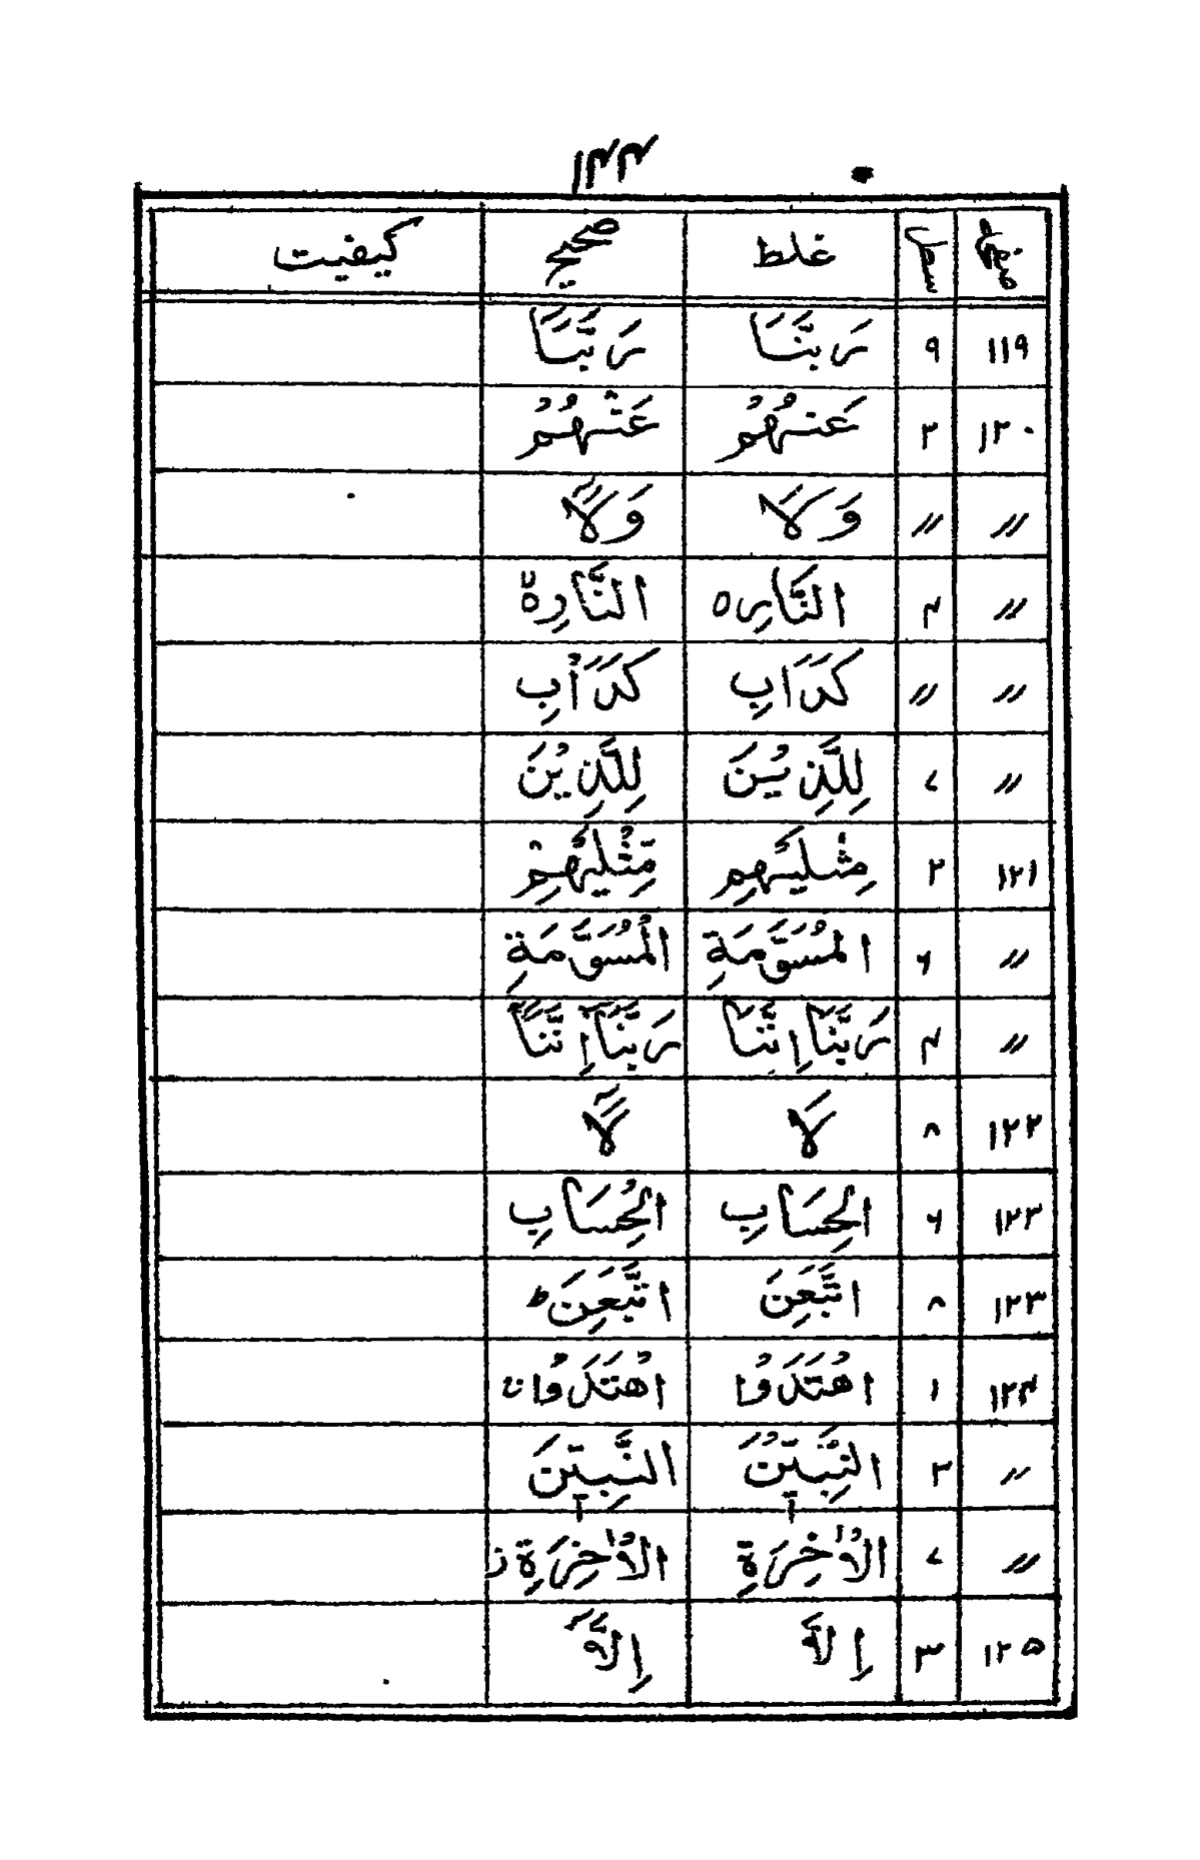 ۱۴۴
صفحہ سطر غلط صحیح کیفیت
۱۱۹ ۹ رَبَّنَا رَبَّنَاۤ
۱۲۰ ۲ عَنهُمُ عَنْهُمُ
〃 〃 وَلَا وَلَاۤ
〃 ۴ النَّارِ ہ النَّارِ ۃ
〃 〃 كَدَاَبِ كَدَاْبِ
〃 ۷ لِلَّذِيُنَ لِلَّذِيْنَ
۱۲۱ ۲ مِثْلَيهِم مِّثْلَيْهِمْ
〃 ۶ المُسَوَّمَةِ الْمُسَوَّمَةِ
〃 ۴ رَبَّنَا اِنَّنَا رَبَّنَاۤ اِنَّنَاۤ
۱۲۲ ۸ لَا لَاۤ
۱۲۳ ۶ الحِسَابِ الْحِسَابِ
۱۲۳ ۸ اتَّبَعَنِ اتَّبَعَنِ ط
۱۲۴ ۱ اهْتَدَوْا اهْتَدَوْا ن
〃 ۲ النَّبِيّٖنَ النَّبِيّٖنَ
〃 ۷ الْاٰخِرَةِ الْاٰخِرَةِ ز
۱۲۵ ۳ اِلَّا اِلَّاۤ